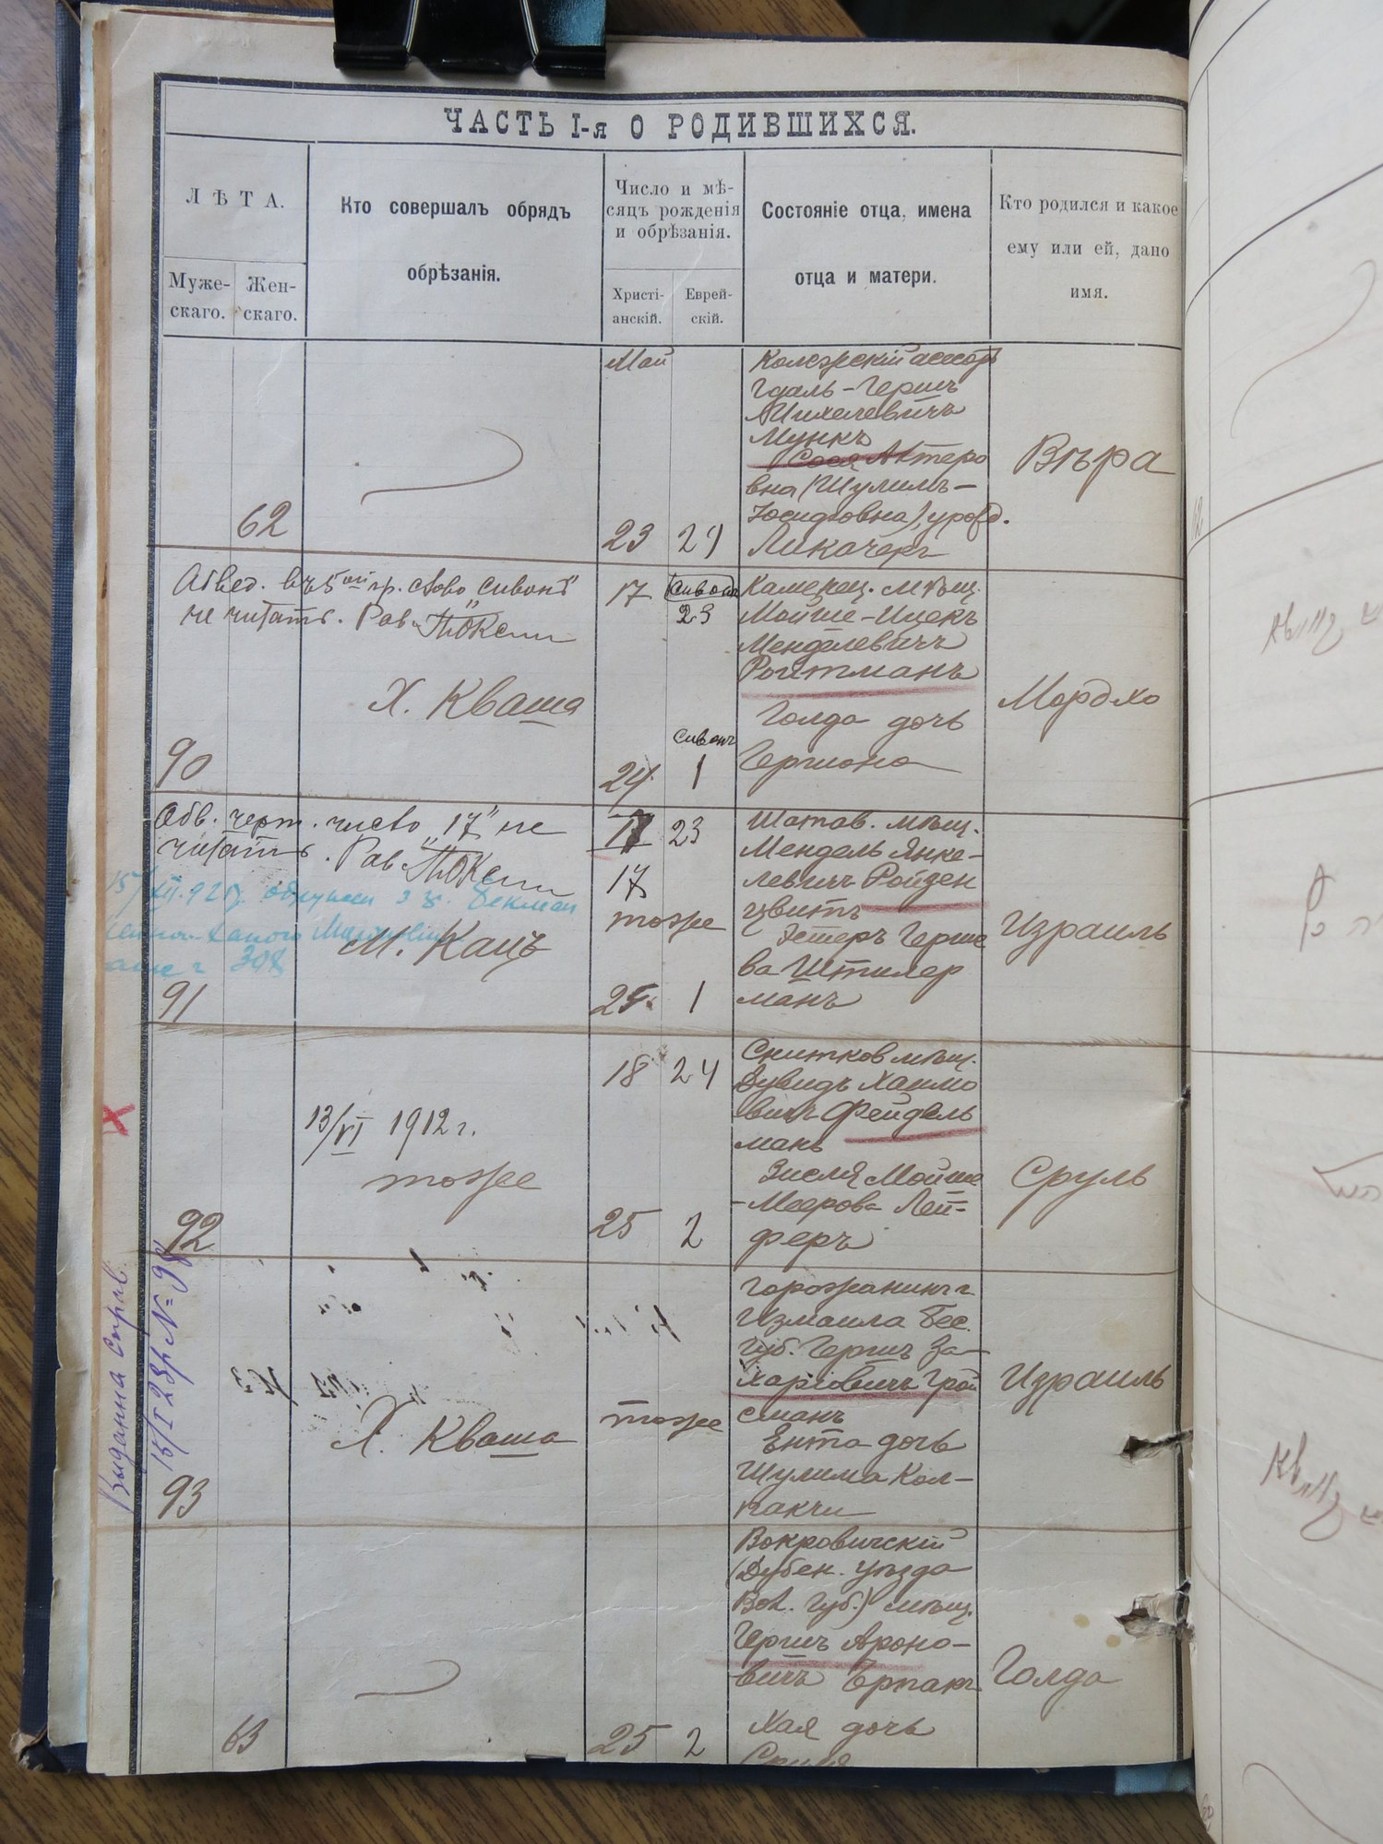 ЧАСТЬ I-я О РОДИВШИХСЯ.
ЛѢТА.
Муже-
скаго.
Жен-
скаго.
Кто совершалъ обрядъ
обрѣзанія.
Число и мѣ-
сяцъ рожденія
и обрѣзанія.
Христі-
анскій.
Еврей-
скій.
Состояніе отца, имена
отца и матери.
Кто родился и какое
ему или ей, дано
имя.
62
Май
23 29
Колежскій ассесоръ
Гдаль-Гершъ
Михелевичъ
Мункъ
Сося Актеро
вна (Шулимъ-
Іосифовна), урожд.
Вѣра
Обвед. въ 5ой гр. слово „Сивонъ"
не читать. Рав.
Х. Кваша
90
17 Сивонъ
23
Сивонъ
24 1
Каменец. мѣщ.
Мойше-Ицекъ
Менделевичъ
Ройтманъ
Голда дочь
Гершона
Мордхо
Обв. черт. число „17" не
читать. Рав.
Ш. Кацъ
91
17 23
17
тоже
24 1
Шатав. мѣщ.
Мендель Янке-
левичъ Ройзен
цвитъ
Эстеръ Герше
ва Штилер
манъ
Израиль
13/VI 1912 г.
тоже
92
18 24
25 2
Снитков мѣщ.
Дувидъ Хаимо
вичъ Фейдель
манъ
Зисля Мойше
-Меерова Лей-
феръ
Сруль
Выданна справ.
15/I 28р №98
Х. Кваша
93
тоже
Горожанинъ г.
Измаила Бес.
Губ. Гершъ За-
харіовичъ Грой
сманъ
Ента дочь
Шулима Кол-
пакчи
Израиль
63
25 2
Вокровичскій
(Дубен. уѣзда
Вол. Губ.) мѣщ.
Гершъ Ароно-
вичъ
Хая дочь
Сруля
Голда